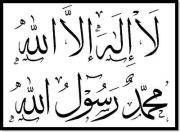 لَا إِلٰهَ إِلَّا اللّٰه
مُحَمَّدٌ رَسُولُ اللّٰه